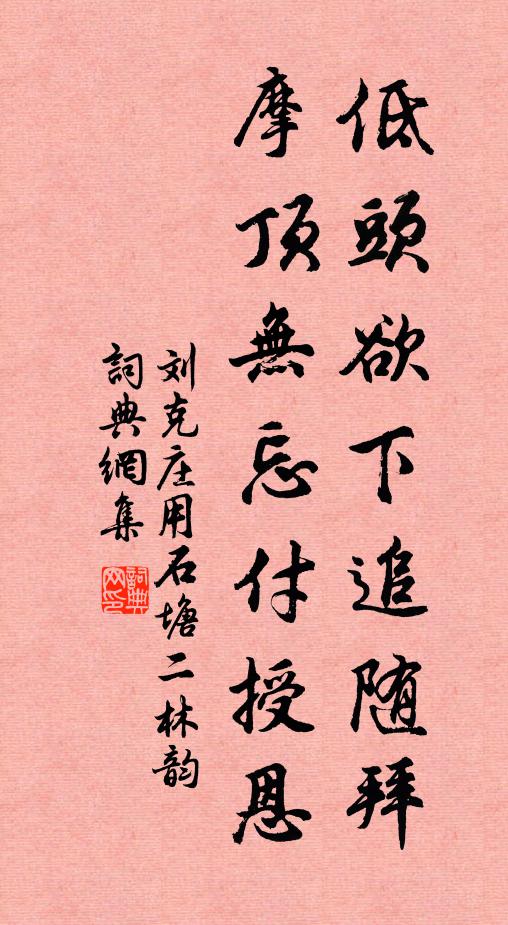 低頭欲下追随拜
摩頂無忘付授恩
刘克庄用石塘二林韵
詞典網集
詞典网印